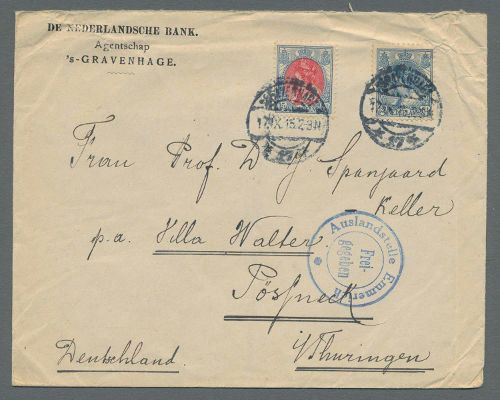 DE NEDERLANDSCHE BANK.
Agentschap
's-GRAVENHAGE.
17.X.15.2-3N
Frau Prof. D. J. Spanjaard
- Keller
p.a. Villa Walter
Pößneck
i/Thüringen
Deutschland.
Auslandstelle Emmerich
Frei-
gegeben